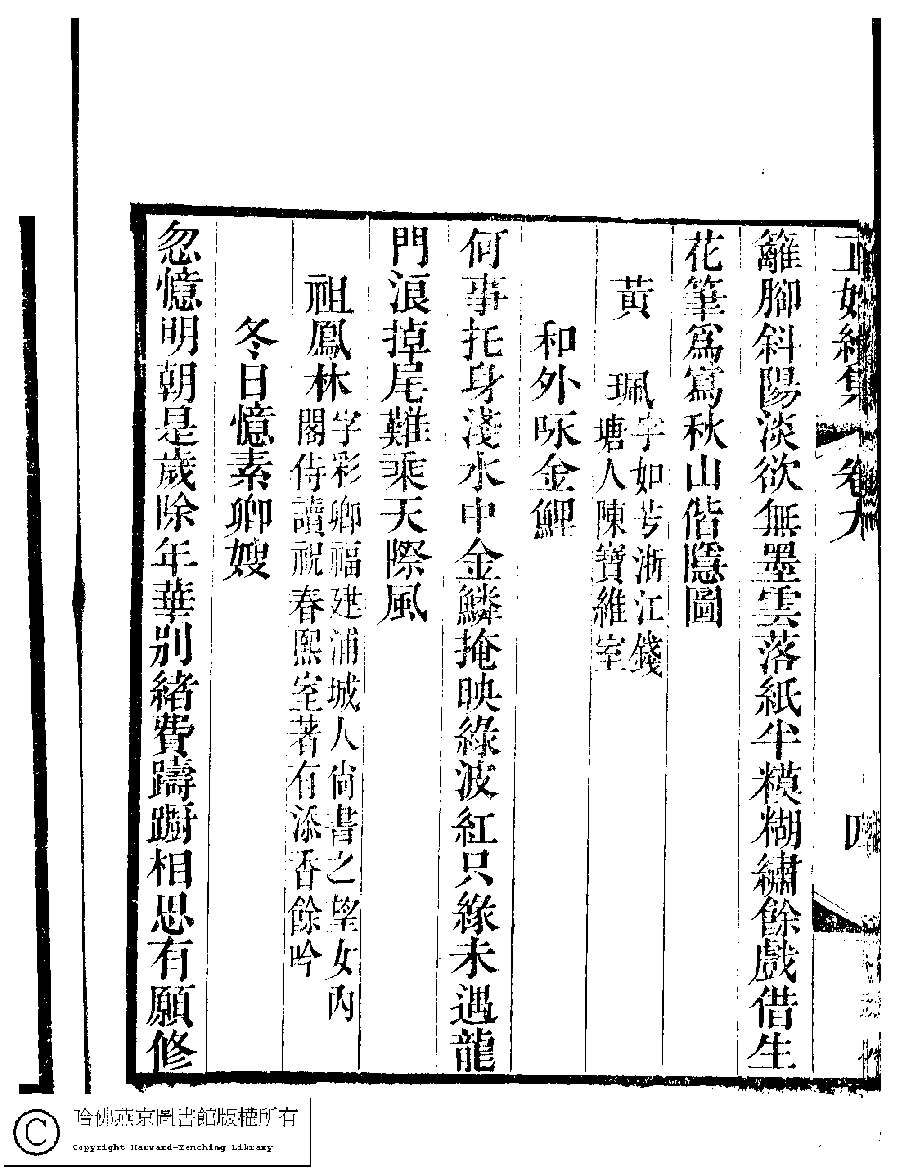 正始續集 卷九 四
籬腳斜陽淡欲無墨雲落紙半糢糊繡餘戲借生
花筆爲寫秋山偕隱圖
黃 珮字如芳浙江錢
塘人陳寶維室
和外咏金鯉
何事托身淺水中金鱗掩映綠波紅只緣未遇龍
門浪掉尾難乘天際風
祖鳳林字彩卿福建浦城人尚書之望女內
閣侍讀祝春熙室著有添香餘吟
冬日憶素卿嫂
忽憶明朝是歲除年華別緒費躊躕相思有願修
哈佛燕京圖書館版權所有
Copyright Harvard-Yenching Library